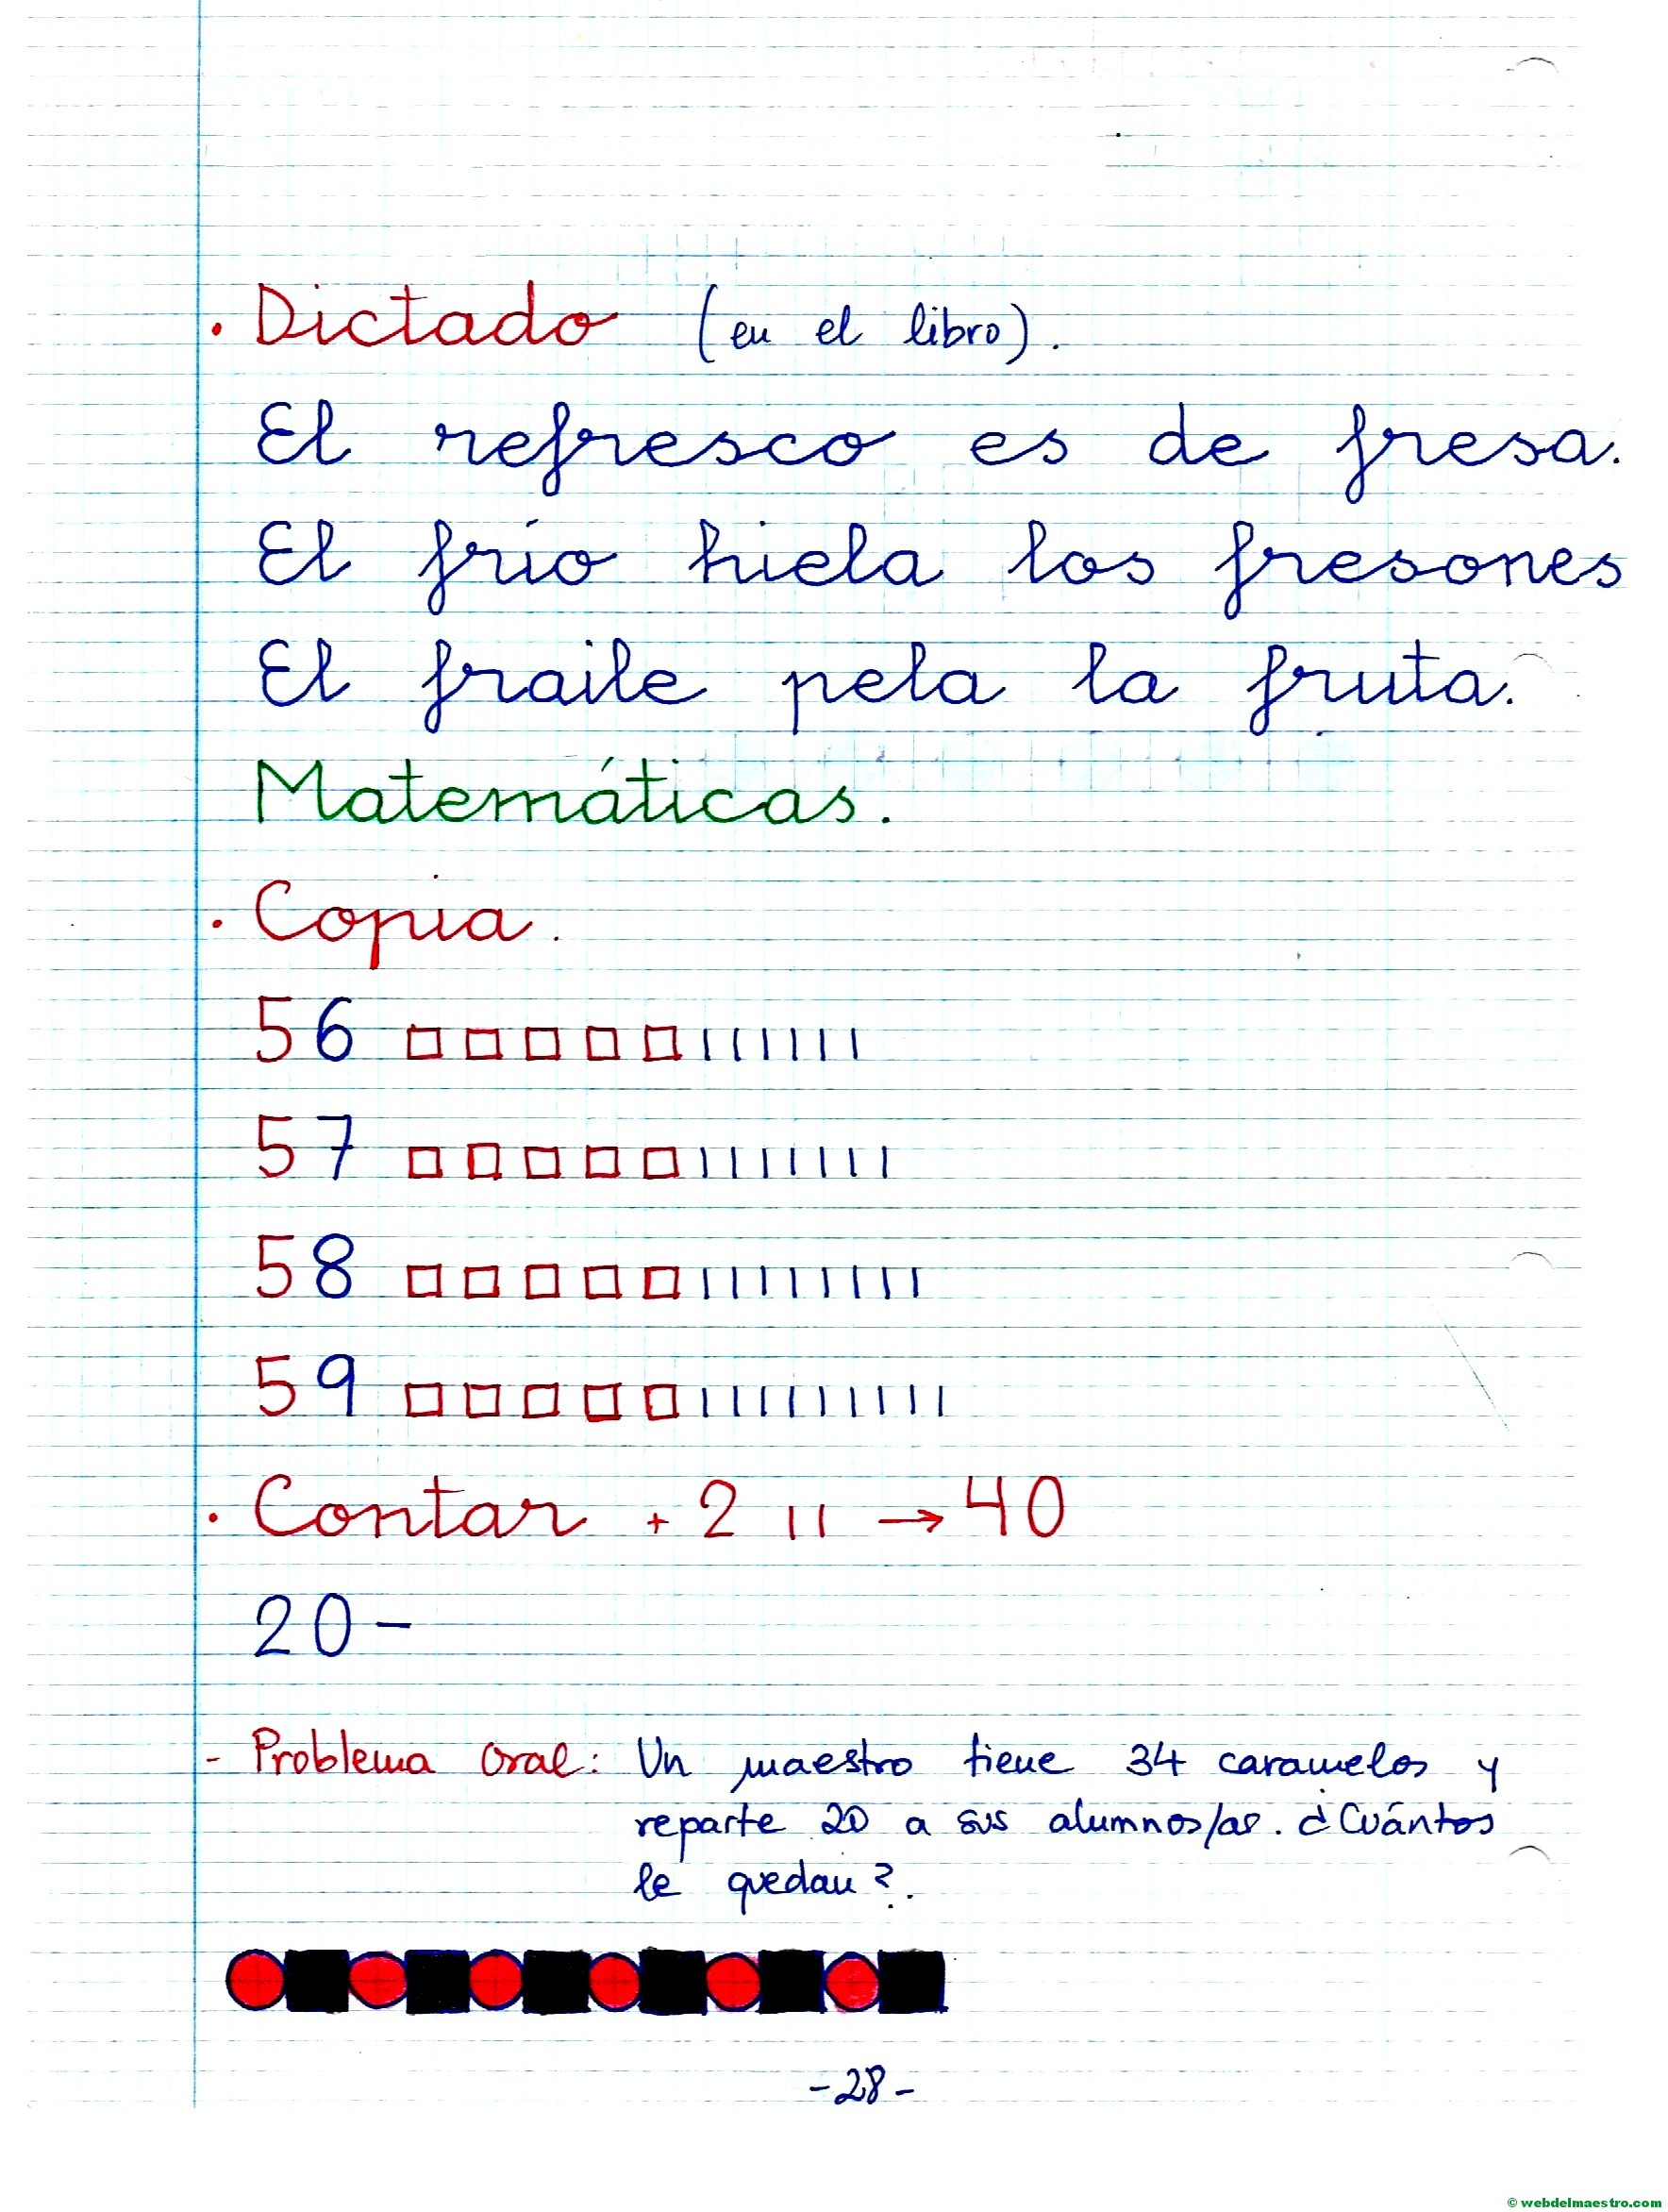 . Dictado (en el libro).
El refresco es de fresa.
El frío hiela los fresones
El fraile pela la fruta.
Matemáticas.
. Copia.
56
57
58
59
. Contar + 2 11 → 40
20-
- Problema Oral: Un maestro tiene 34 caramelos y
reparte 20 a sus alumnos/as. ¿Cuántos
le quedan?.
-28-
© webdelmaestro.com